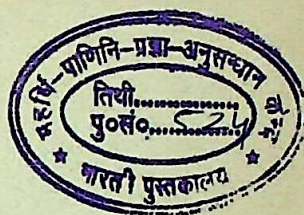 महर्षि-पाणिनि-प्रज्ञा-अनुसन्धान
तिथी..............
पु०सं०.... 524
भारती पुस्तकालय